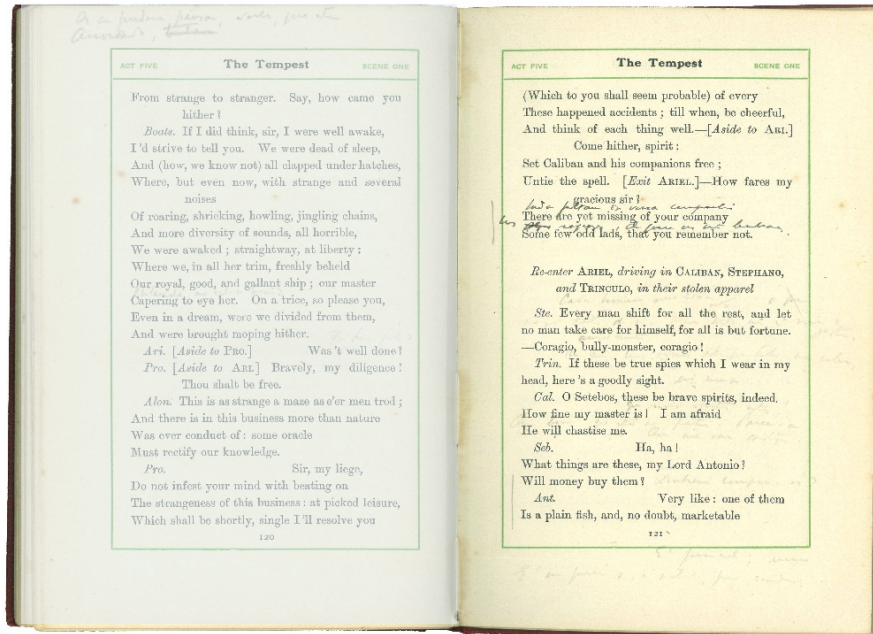 ACT FIVE The Tempest SCENE ONE
From strange to stranger. Say, how came you
hither?
Boats. If I did think, sir, I were well awake,
I'd strive to tell you. We were dead of sleep,
And (how, we know not) all clapped under hatches,
Where, but even now, with strange and several
noises
Of roaring, shrieking, howling, jingling chains,
And more diversity of sounds, all horrible,
We were awaked; straightway, at liberty:
Where we, in all her trim, freshly beheld
Our royal, good, and gallant ship; our master
Capering to eye her. On a trice, so please you,
Even in a dream, were we divided from them,
And were brought moping hither.
Ari. [Aside to PRO.] Was't well done?
Pro. [Aside to ARI.] Bravely, my diligence!
Thou shalt be free.
Alon. This is as strange a maze as e'er men trod;
And there is in this business more than nature
Was ever conduct of: some oracle
Must rectify our knowledge.
Pro. Sir, my liege,
Do not infest your mind with beating on
The strangeness of this business: at picked leisure,
Which shall be shortly, single I'll resolve you
120
ACT FIVE The Tempest SCENE ONE
(Which to you shall seem probable) of every
These happened accidents; till when, be cheerful,
And think of each thing well.—[Aside to ARI.]
Come hither, spirit:
Set Caliban and his companions free;
Untie the spell. [Exit ARIEL.]—How fares my
gracious sir?
There are yet missing of your company
Some few odd lads, that you remember not.
Re-enter ARIEL, driving in CALIBAN, STEPHANO,
and TRINCULO, in their stolen apparel
Ste. Every man shift for all the rest, and let
no man take care for himself, for all is but fortune.
—Coragio, bully-monster, coragio!
Trin. If these be true spies which I wear in my
head, here's a goodly sight.
Cal. O Setebos, these be brave spirits, indeed.
How fine my master is! I am afraid
He will chastise me.
Seb. Ha, ha!
What things are these, my Lord Antonio?
Will money buy them?
Ant. Very like: one of them
Is a plain fish, and, no doubt, marketable
121